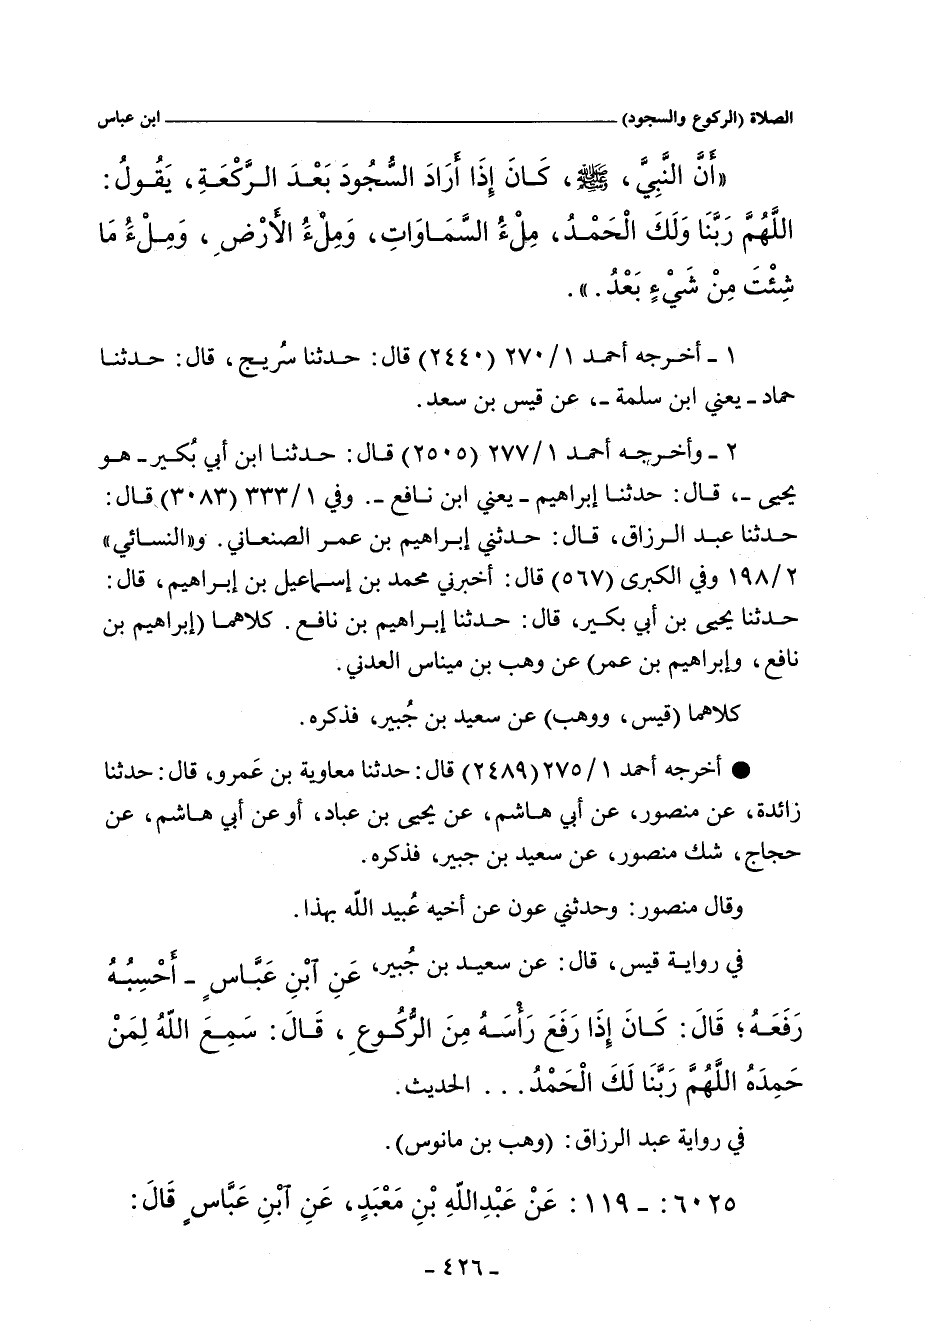 الصلاة (الركوع والسجود) ــــــــــــــــــ ابن عباس
«أَنَّ النَّبِيَّ، ﷺ، كَـانَ إِذَا أَرَادَ السُّجُودَ بَعْدَ الـرَّكْعَـةِ، يَقُـولُ:
اللَّهُمَّ رَبَّنَا وَلَكَ الْحَمْـدُ، مِلْءُ السَّمَـاوَاتِ، وَمِلْءُ الأَرْضِ، وَمِـلْءُ مَا
شِئْتَ مِنْ شَيْءٍ بَعْدُ.».
١ ـ أخـرجه أحمد ١/٢٧٠ (٢٤٤٠) قال: حـدثنا سُريـج، قال: حـدثنـا
حماد ـ يعني ابن سلمة ـ، عن قيس بن سعد.
٢ ـ وأخـرجـه أحمـد ١/٢٧٧ (٢٥٠٥) قـال: حـدثنـا ابن أبي بُكـير ـ هـو
يحيى ـ، قـال: حدثنـا إبراهيم ـ يعني ابن نـافع ـ. وفي ١/٣٣٣ (٣٠٨٣) قـال:
حدثنا عبـد الـرزاق، قـال: حـدثني إبـراهيم بن عمـر الصنعـاني. و«النسـائي»
٢/١٩٨ وفي الكبرى (٥٦٧) قال: أخبرني محمد بن إسـماعيل بن إبـراهيم، قال:
حـدثنا يحيى بن أبي بكـير، قال: حـدثنا إبـراهيم بن نافـع. كلاهمـا (إبراهيم بن
نافع، وإبراهيم بن عمر) عن وهب بن ميناس العدني.
كلاهما (قيس، ووهب) عن سعيد بن جُبير، فذكره.
● أخرجه أحمد ١/٢٧٥ (٢٤٨٩) قال: حدثنا معاوية بن عَمرو، قال: حدثنا
زائدة، عن منصور، عن أبي هـاشم، عن يحيى بن عباد، أو عن أبي هـاشم، عن
حجاج، شك منصور، عن سعيد بن جبير، فذكره.
وقال منصور: وحدثني عون عن أخيه عُبيد الله بهذا.
في روايـة قيس، قال: عن سعيـد بن جُبير، عَنِ آبْنِ عَبَّـاسٍ ـ أَحْسِبُـهُ
رَفَعَـهُ؛ قَالَ: كَـانَ إِذَا رَفَعَ رَأْسَـهُ مِنَ الرُّكُـوعِ، قَـالَ: سَمِـعَ اللَّهُ لِمَنْ
حَمِدَهُ اللَّهُمَّ رَبَّنَا لَكَ الْحَمْدُ... الحديث.
في رواية عبد الرزاق: (وهب بن مانوس).
٦٠٢٥: ـ ١١٩: عَنْ عَبْدِاللَّهِ بْنِ مَعْبَدٍ، عَنِ آبْنِ عَبَّاسٍ قَالَ:
ـ ٤٢٦ ـ